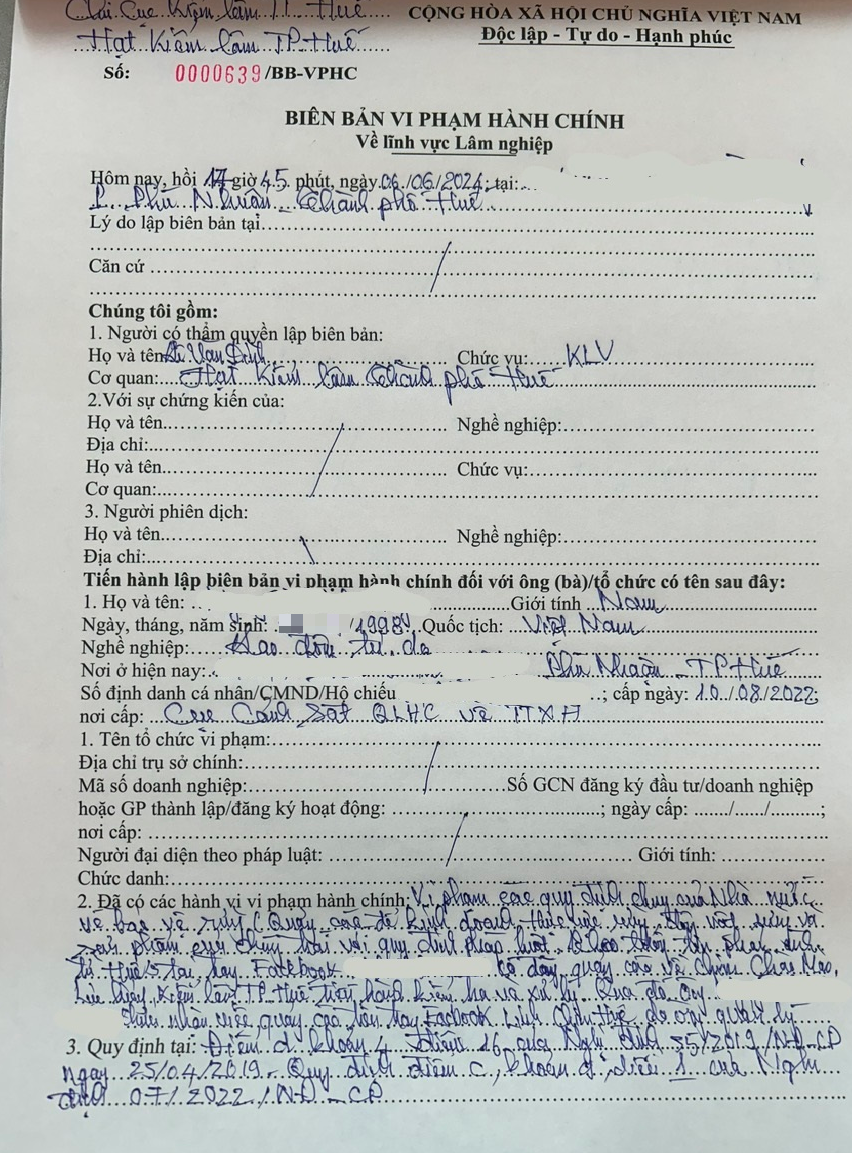 Chi Cục Kiểm lâm TT Huế
CỘNG HÒA XÃ HỘI CHỦ NGHĨA VIỆT NAM
Hạt Kiểm lâm TP Huế
Độc lập - Tự do - Hạnh phúc
Số: 0000639/BB-VPHC
BIÊN BẢN VI PHẠM HÀNH CHÍNH
Về lĩnh vực Lâm nghiệp
Hôm nay, hồi 17 giờ 45 phút, ngày 06/06/2024; tại:
P. Phú Nhuận Thành phố Huế
Lý do lập biên bản tại
Căn cứ
Chúng tôi gồm:
1. Người có thẩm quyền lập biên bản:
Họ và tên Văn Chức vụ: KLV
Cơ quan: Hạt Kiểm lâm Thành phố Huế
2.Với sự chứng kiến của:
Họ và tên Nghề nghiệp:
Địa chỉ:
Họ và tên Chức vụ:
Cơ quan:
3. Người phiên dịch:
Họ và tên Nghề nghiệp:
Địa chỉ:
Tiến hành lập biên bản vi phạm hành chính đối với ông (bà)/tổ chức có tên sau đây:
1. Họ và tên: Giới tính Nam
Ngày, tháng, năm sinh: /1998 Quốc tịch: Việt Nam
Nghề nghiệp: Lao động tự do
Nơi ở hiện nay: Phú Nhuận - TP Huế
Số định danh cá nhân/CMND/Hộ chiếu ; cấp ngày: 10/08/2022;
nơi cấp: Cục Cảnh sát QLHC về TTXH
1. Tên tổ chức vi phạm:
Địa chỉ trụ sở chính:
Mã số doanh nghiệp: Số GCN đăng ký đầu tư/doanh nghiệp
hoặc GP thành lập/đăng ký hoạt động: ; ngày cấp: ..../..../....;
nơi cấp:
Người đại diện theo pháp luật: Giới tính:
Chức danh:
2. Đã có các hành vi vi phạm hành chính: Vi phạm các quy định chung của Nhà nước
về bảo vệ rừng (Quảng cáo để kinh doanh thực vật rừng động vật rừng và
sản phẩm của chúng trái với quy định pháp luật
Huế tại trang Facebook quảng cáo về chim Chào Mào,
Kiểm lâm TP Huế tiến hành kiểm tra và xử lý. Qua đó ông
nhận việc quảng cáo trên trang Facbook do ông quản lý
3. Quy định tại: Điểm d khoản 4 Điều 16 của Nghị định 35/2019/NĐ-CP
ngày 25/04/2019. Quy định điểm c, khoản điều 1 của Nghị
định 07/2022/NĐ-CP